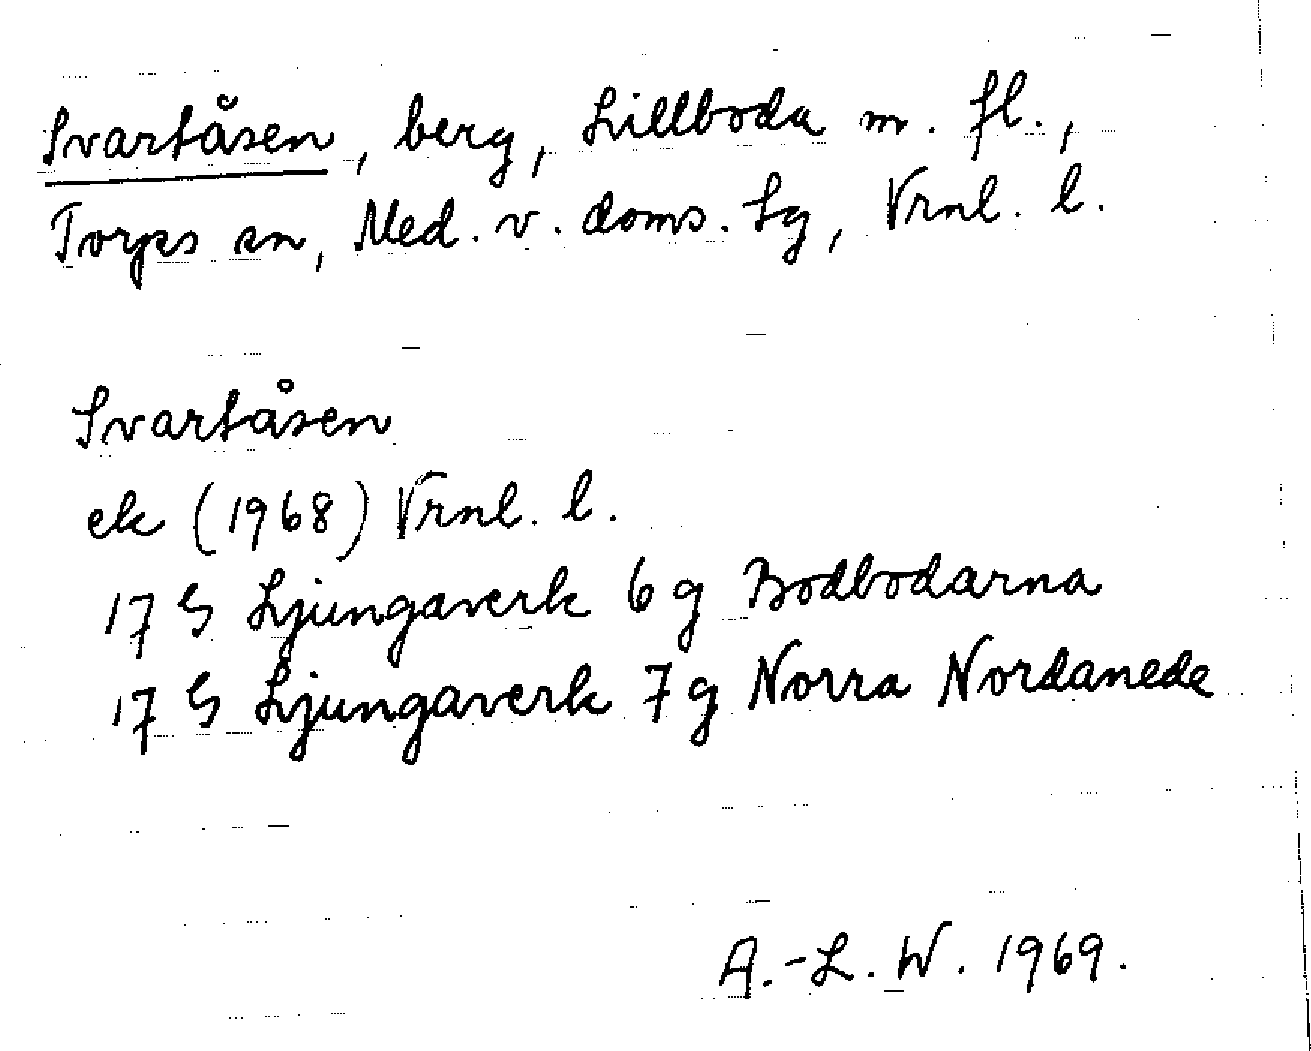 Svartåsen, berg, Lillboda m. fl.,
Torps sn, Med. v. doms. Lg, Vrnl. l.
Svartåsen
ek (1968) Vrnl. l.
17 G Ljungaverk 6 g Bodbodarna
17 G Ljungaverk 7 g Norra Nordanede
A.-L. W. 1969.